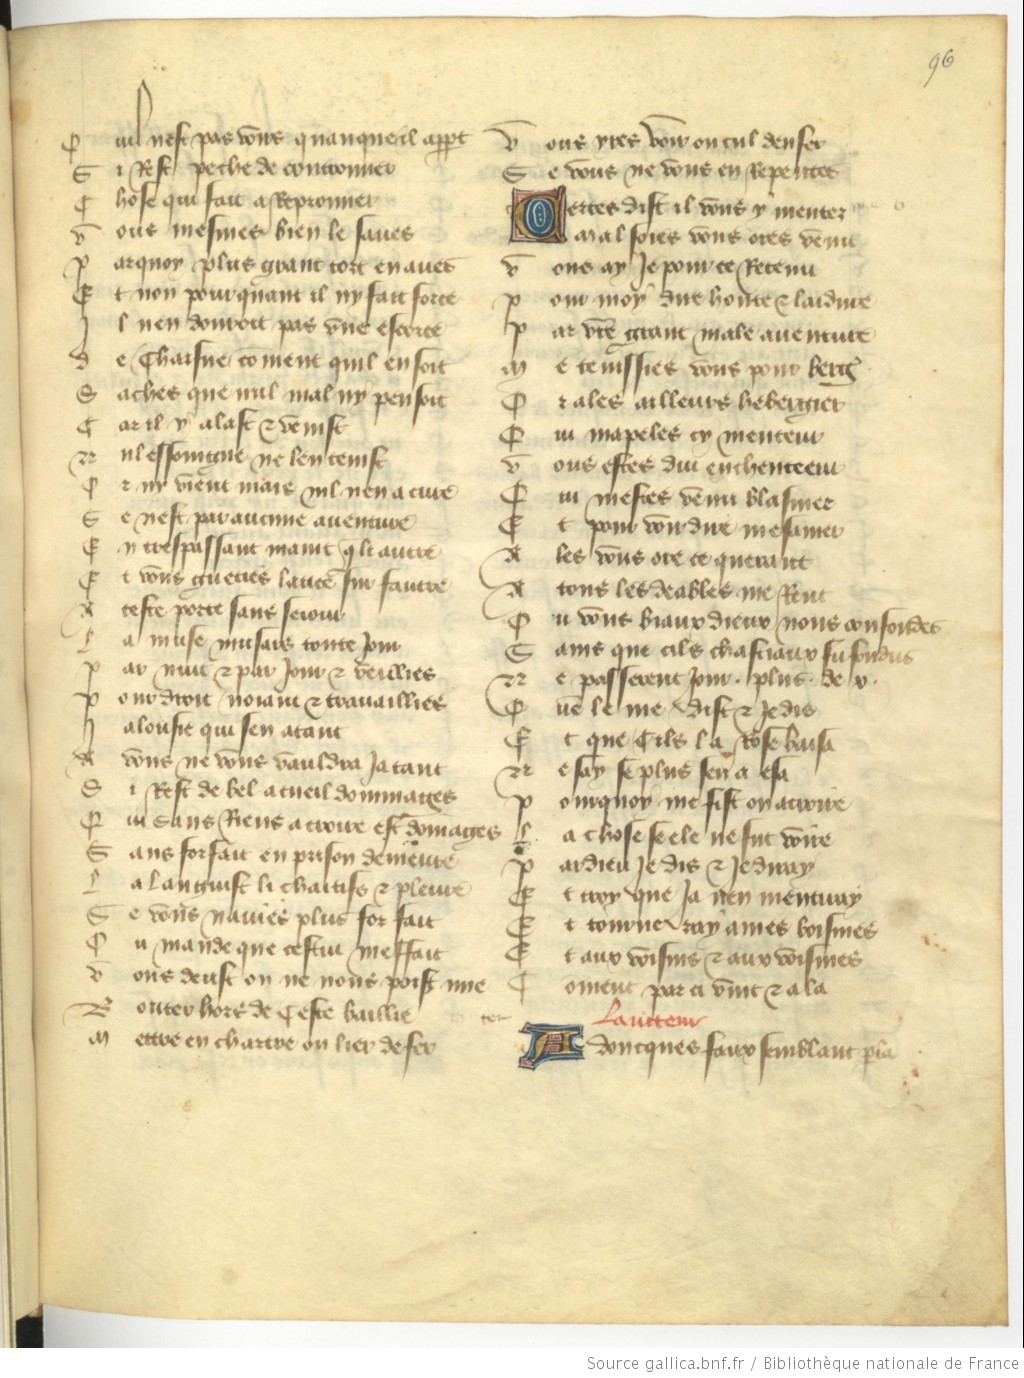 96
Quil nest pas voirs quanquil appt
Si Rest peche de controuuer
Chose qui fait a Reprouuer
Vous mesmes bien le saues
Parquoy plus grant tort en aues
Et non pourquant il ny fait force
Il nen donroit pas vne escorce
De Charsne coment quil en soit
Saches que nul mal ny pensoit
Car il y alast & venist
Nul essoingne ne len tenist
Or ny vient mais nil nen a cure
Se nest par aucune auenture
En trespassant mains q li autre
Et vous guecies lance sur fautre
A ceste porte sans seiour
La muse musars toute Jour
Par nuit & par Jour & veillies
Pour droit noiant & trauaillies
Jalousie qui sen atant
A vous ne vous vauldra Ja tant
Si Rest de bel acueil dommages
Qui sans Riens acroire est domages
Sans forfait en prison demeure
La languist li chaitifs & pleure
Se vous nauies plus forfait
Ou mande que cestui meffait
Vous deust on ne vous poist mie
Bouter hors de Ceste baillie
Mettre en chartre ou lier de fer
Vous yres voir ou cul denfer
Se vous ne vous en Repentes
Certes dist il vous y menter
Mal soies vous ores venu
Vous ay Je pour ce Recenu
Pour moy dire honte & laidure
Par vtre grant male auenture
Me tenissies vous pour bergier
Or ales ailleurs hebergier
Qui mapeles cy menteur
Vous estes dui enchenteeur
Qui mestes venu blasmer
Et pour voir dire mesamer
Ales vous ore ce querant
A tous les deables me Rent
Ou vous biaux dieux nous confondes
Sains que cils chasciaux fu fondus
Ne passerent Jour. plus. de v.
Que le me dist & Je dis
Et que Cils la Rose baisa
Ne say se plus sen aesa
Pourquoy me fist on acroire
La chose se ele ne fut voire
Par dieu Je dis & Je diray
Et croy que Ja nen mentiray
Et tourneray a mes boisines
Et aux voisins & aux voisines
Coment par ci vint & ala
Laucteur
Adoncques faux semblant pla
Source gallica.bnf.fr / Bibliothèque nationale de France